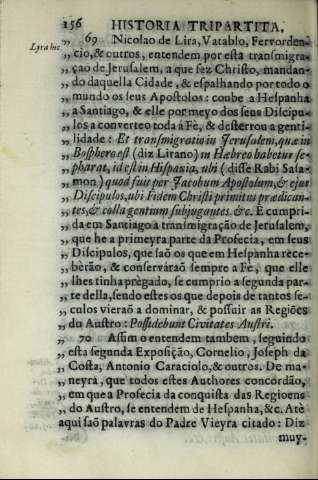 156 HISTORIA TRIPARTITA,
Lyra hic
„ 69 Nicolao de Lira, Vatablo, Fervorden-
„ cio, & outros, entendem por esta transmigra-
„ çaõ de Jerusalem, a que fez Christo, mandan-
„ do daquella Cidade, & espalhando por todo o
„ mundo os seus Apostolos: coube a Hespanha
„ a Santiago, & elle por meyo dos seus Discipu-
„ los a converteo toda à Fè, & desterrou a genti-
„ lidade: Et transmigratio in Jerusalem, quæ in
„ Bosphoro est (diz Lirano) in Hæbreo habetur se-
„ pharat, id est in Hispania, ubi (disse Rabi Sala-
„ mon) quod fuit per Jacobum Apostolum, & ejus
„ Discipulos, ubi Fidem Christi primitus prædican-
„ tes, & colla gentium subjugantes. &c. E cumpri-
„ da em Santiago a transmigraçaõ de Jerusalem,
„ que he a primeyra parte da Profecia, em seus
„ Discipulos, que saõ os que em Hespanha rece-
„ beràõ, & conservàraõ sempre a Fè, que elle
„ lhes tinha prègado, se cumprio a segunda par-
„ te della, sendo estes os que depois de tantos se-
„ culos vieraõ a dominar, & possuir as Regiões
„ do Austro: Possidebunt Civitates Austri.
„ 70 Assim o entendem tambem, seguindo
„ esta segunda Exposição, Cornelio, Joseph da
„ Costa, Antonio Caraciolo, & outros. De ma-
„ neyra, que todos estes Authores concordaõ,
„ em que a Profecia da conquista das Regioens
„ do Austro, se entendem de Hespanha, &c. Atè
aqui saõ palavras do Padre Vieyra citado: Diz
muy-